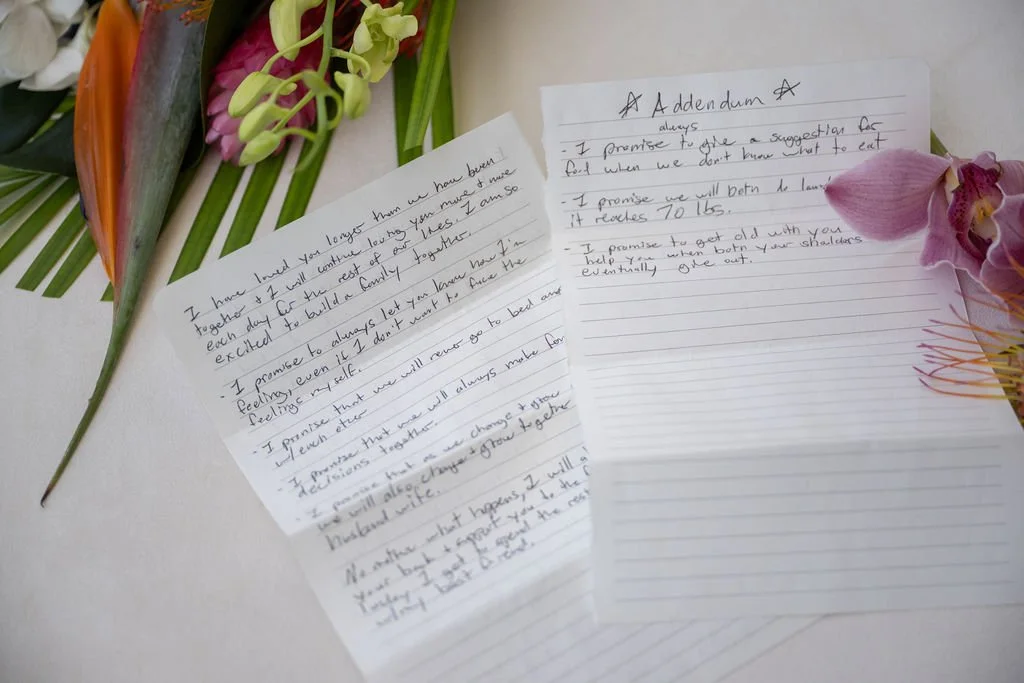 I have loved you longer than we have been
together & I will continue loving you more & more
each day for the rest of our lives. I am so
excited to build a family together.
- I promise to always let you know how I'm
feeling, even if I don't want to face the
feelings myself.
- I promise that we will never go to bed
w/each other
- I promise that we will always make
decisions together.
- I promise that as we change & grow
we will also change & grow together
husband wife.
No matter what happens, I will
your back & support you to the
Today I get to spend the rest
my best friend.
☆ Addendum ☆
always
- I promise to give a suggestion for
food when we don't know what to eat
- I promise we will both do
it reaches 70 lbs.
- I promise to get old with you
help you when both your shoulders
eventually give out.